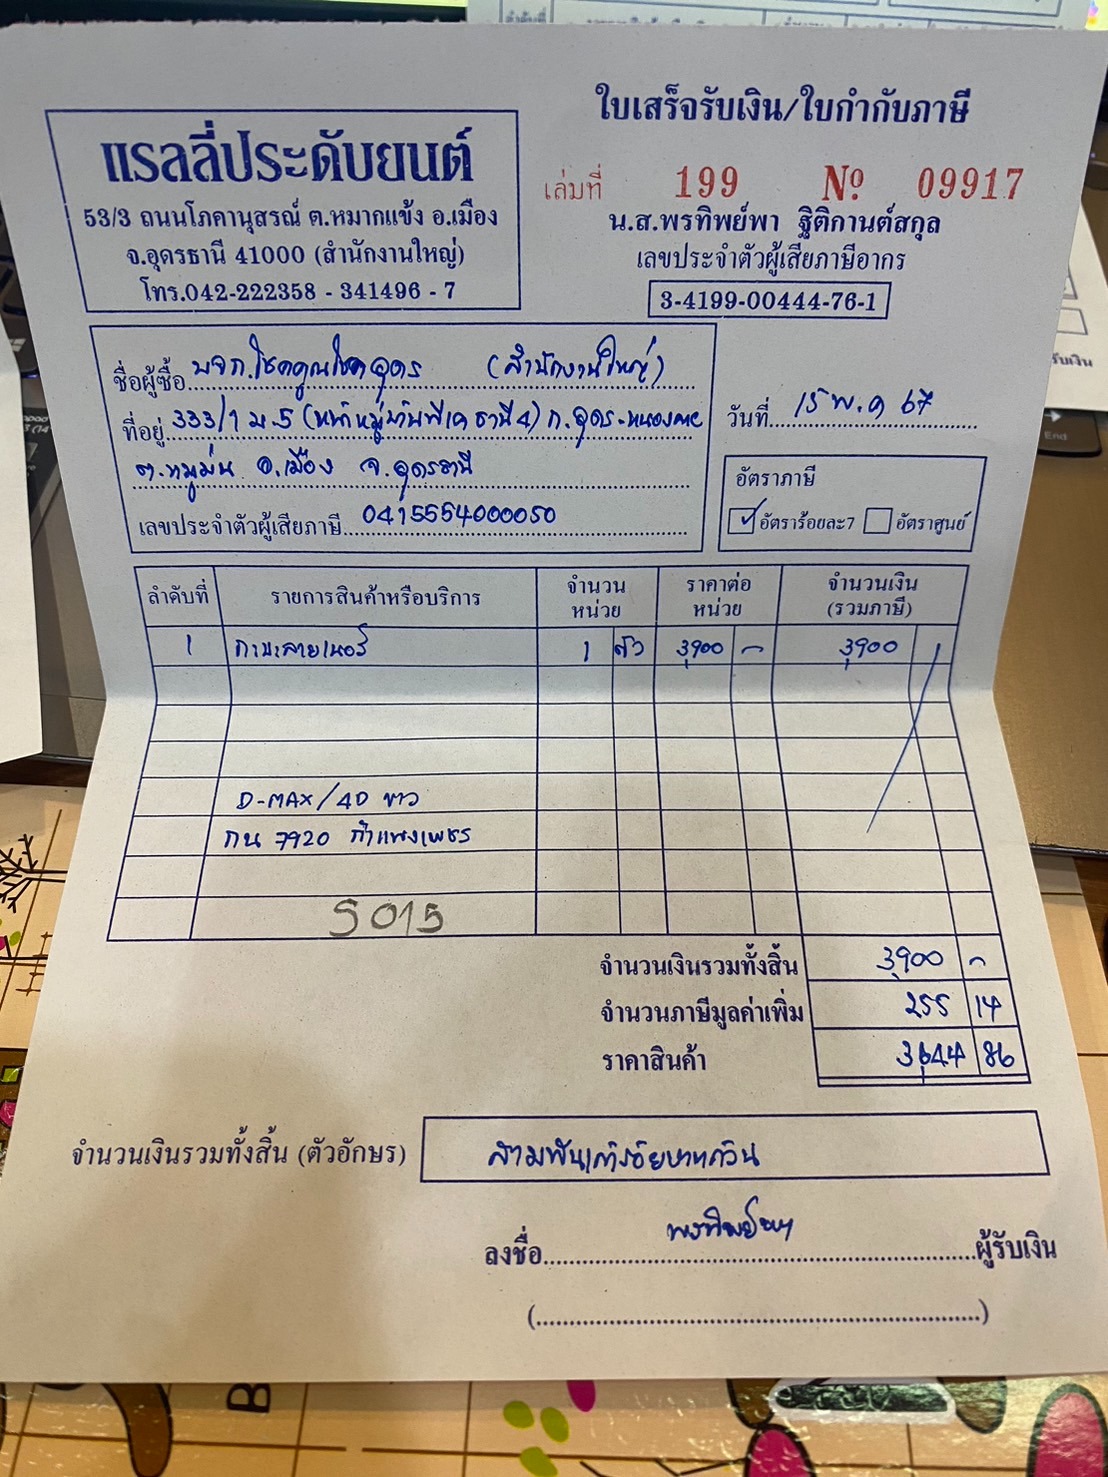 ใบเสร็จรับเงิน/ใบกำกับภาษี
แรลลี่ประดับยนต์
53/3 ถนนโภคานุสรณ์ ต.หมากแข้ง อ.เมือง
จ.อุดรธานี 41000 (สำนักงานใหญ่)
โทร.042-222358 - 341496 - 7
เล่มที่ 199 № 09917
น.ส.พรทิพย์พา ฐิติกานต์สกุล
เลขประจำตัวผู้เสียภาษีอากร
3-4199-00444-76-1
ชื่อผู้ซื้อ หจก.โชคคูณโชคอุดร (สำนักงานใหญ่)
ที่อยู่ 333/1 ม.5 (หน้าหมู่บ้านพีเค ธานี 4) ถ.อุดร-หนองคาย
ต.หมูม่น อ.เมือง จ.อุดรธานี
เลขประจำตัวผู้เสียภาษี 0415554000050
วันที่ 15 พ.ค 67
อัตราภาษี
อัตราร้อยละ7 อัตราศูนย์
ลำดับที่ รายการสินค้าหรือบริการ จำนวนหน่วย ราคาต่อหน่วย จำนวนเงิน (รวมภาษี)
1 กะบะลายเนอร์ 1 ตัว 3,900 - 3,900
D-MAX/4D ขาว
กน 7920 กำแพงเพชร
5015
จำนวนเงินรวมทั้งสิ้น 3,900 -
จำนวนภาษีมูลค่าเพิ่ม 255 14
ราคาสินค้า 3,644 86
จำนวนเงินรวมทั้งสิ้น (ตัวอักษร) สามพันเก้าร้อยบาทถ้วน
ลงชื่อ พรทิพย์พา ผู้รับเงิน